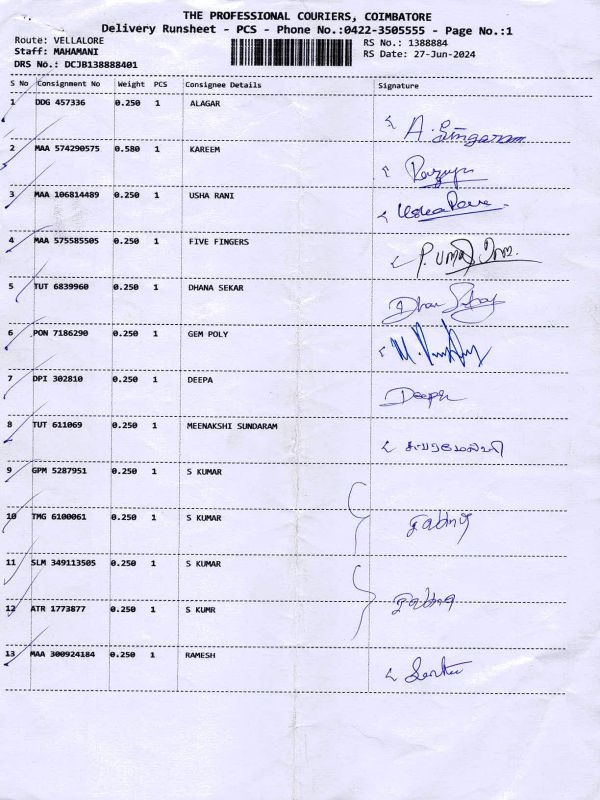 THE PROFESSIONAL COURIERS, COIMBATORE
Delivery Runsheet - PCS - Phone No.:0422-3505555 - Page No.:1
Route: VELLALORE
Staff: MAHAMANI
DRS No.: DCJB138888401
RS No.: 1388884
RS Date: 27-Jun-2024
S No Consignment No Weight PCS Consignee Details Signature
1 DDG 457336 0.250 1 ALAGAR
A. Singaram
2 MAA 574290575 0.580 1 KAREEM
3 MAA 106814489 0.250 1 USHA RANI
Usha Rani
4 MAA 575585505 0.250 1 FIVE FINGERS
5 TUT 6839960 0.250 1 DHANA SEKAR
6 PON 7186290 0.250 1 GEM POLY
7 DPI 302810 0.250 1 DEEPA
Deepa
8 TUT 611069 0.250 1 MEENAKSHI SUNDARAM
9 GPM 5287951 0.250 1 S KUMAR
10 TMG 6100061 0.250 1 S KUMAR
11 SLM 349113505 0.250 1 S KUMAR
12 ATR 1773877 0.250 1 S KUMR
13 MAA 300924184 0.250 1 RAMESH